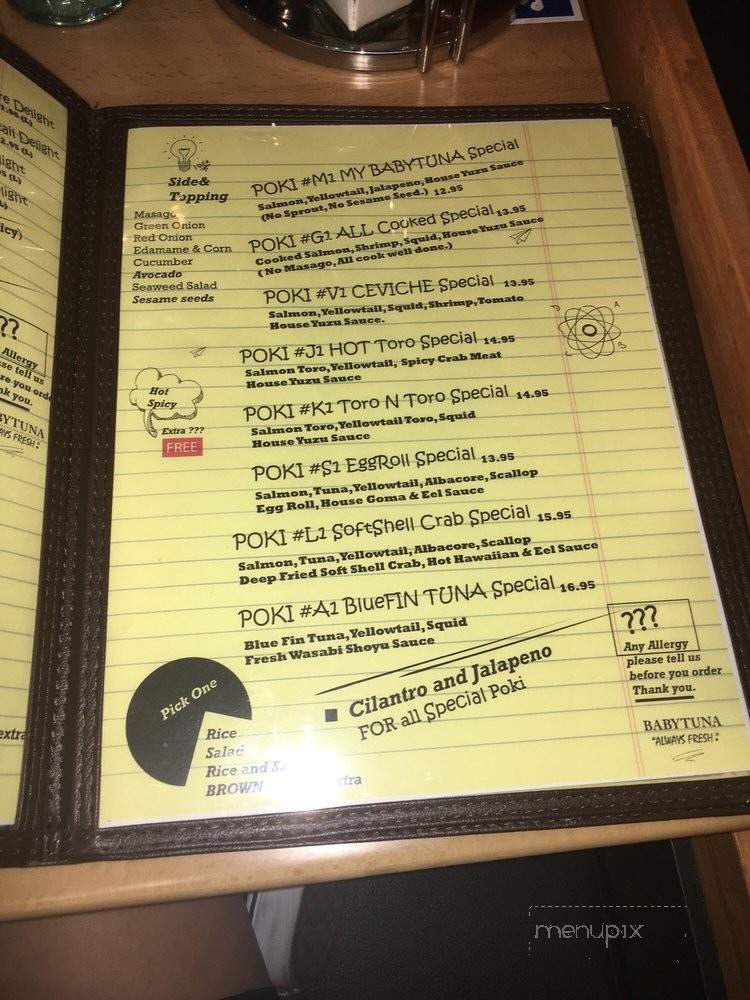 re Delight
.95 (L)
ail Delight
2.95 (L)
light
5 (L)
light
icy)
??
Allergy
se tell us
re you order
nk you.
BYTUNA
AYS FRESH"
extra
IDEA
Side&
Topping
Masago
Green Onion
Red Onion
Edamame & Corn
Cucumber
Avocado
Seaweed Salad
Sesame seeds
Hot
Spicy
Extra ???
FREE
POKI #M1 MY BABYTUNA Special
Salmon,Yellowtail,Jalapeno,House Yuzu Sauce
(No Sprout,No Sesame Seed.) 12.95
POKI #G1 ALL Cooked Special 13.95
Cooked Salmon,Shrimp,Squid,House Yuzu Sauce
( No Masago,All cook well done.)
POKI #V1 CEVICHE Special 13.95
Salmon,Yellowtail,Squid,Shrimp,Tomato
House Yuzu Sauce.
POKI #J1 HOT Toro Special 14.95
Salmon Toro,Yellowtail, Spicy Crab Meat
House Yuzu Sauce
POKI #K1 Toro N Toro Special 14.95
Salmon Toro,Yellowtail Toro,Squid
House Yuzu Sauce
POKI #S1 EggRoll Special 13.95
Salmon,Tuna,Yellowtail,Albacore,Scallop
Egg Roll,House Goma & Eel Sauce
POKI #L1 SoftShell Crab Special 15.95
Salmon,Tuna,Yellowtail,Albacore,Scallop
Deep Fried Soft Shell Crab,Hot Hawaiian & Eel Sauce
POKI #A1 BlueFIN TUNA Special 16.95
Blue Fin Tuna,Yellowtail,Squid
Fresh Wasabi Shoyu Sauce
■ Cilantro and Jalapeno
FOR all Special Poki
Pick One
Rice
Salad
Rice and Sa
BROWN xtra
???
Any Allergy
please tell us
before you order
Thank you.
BABYTUNA
"ALWAYS FRESH"
menupix